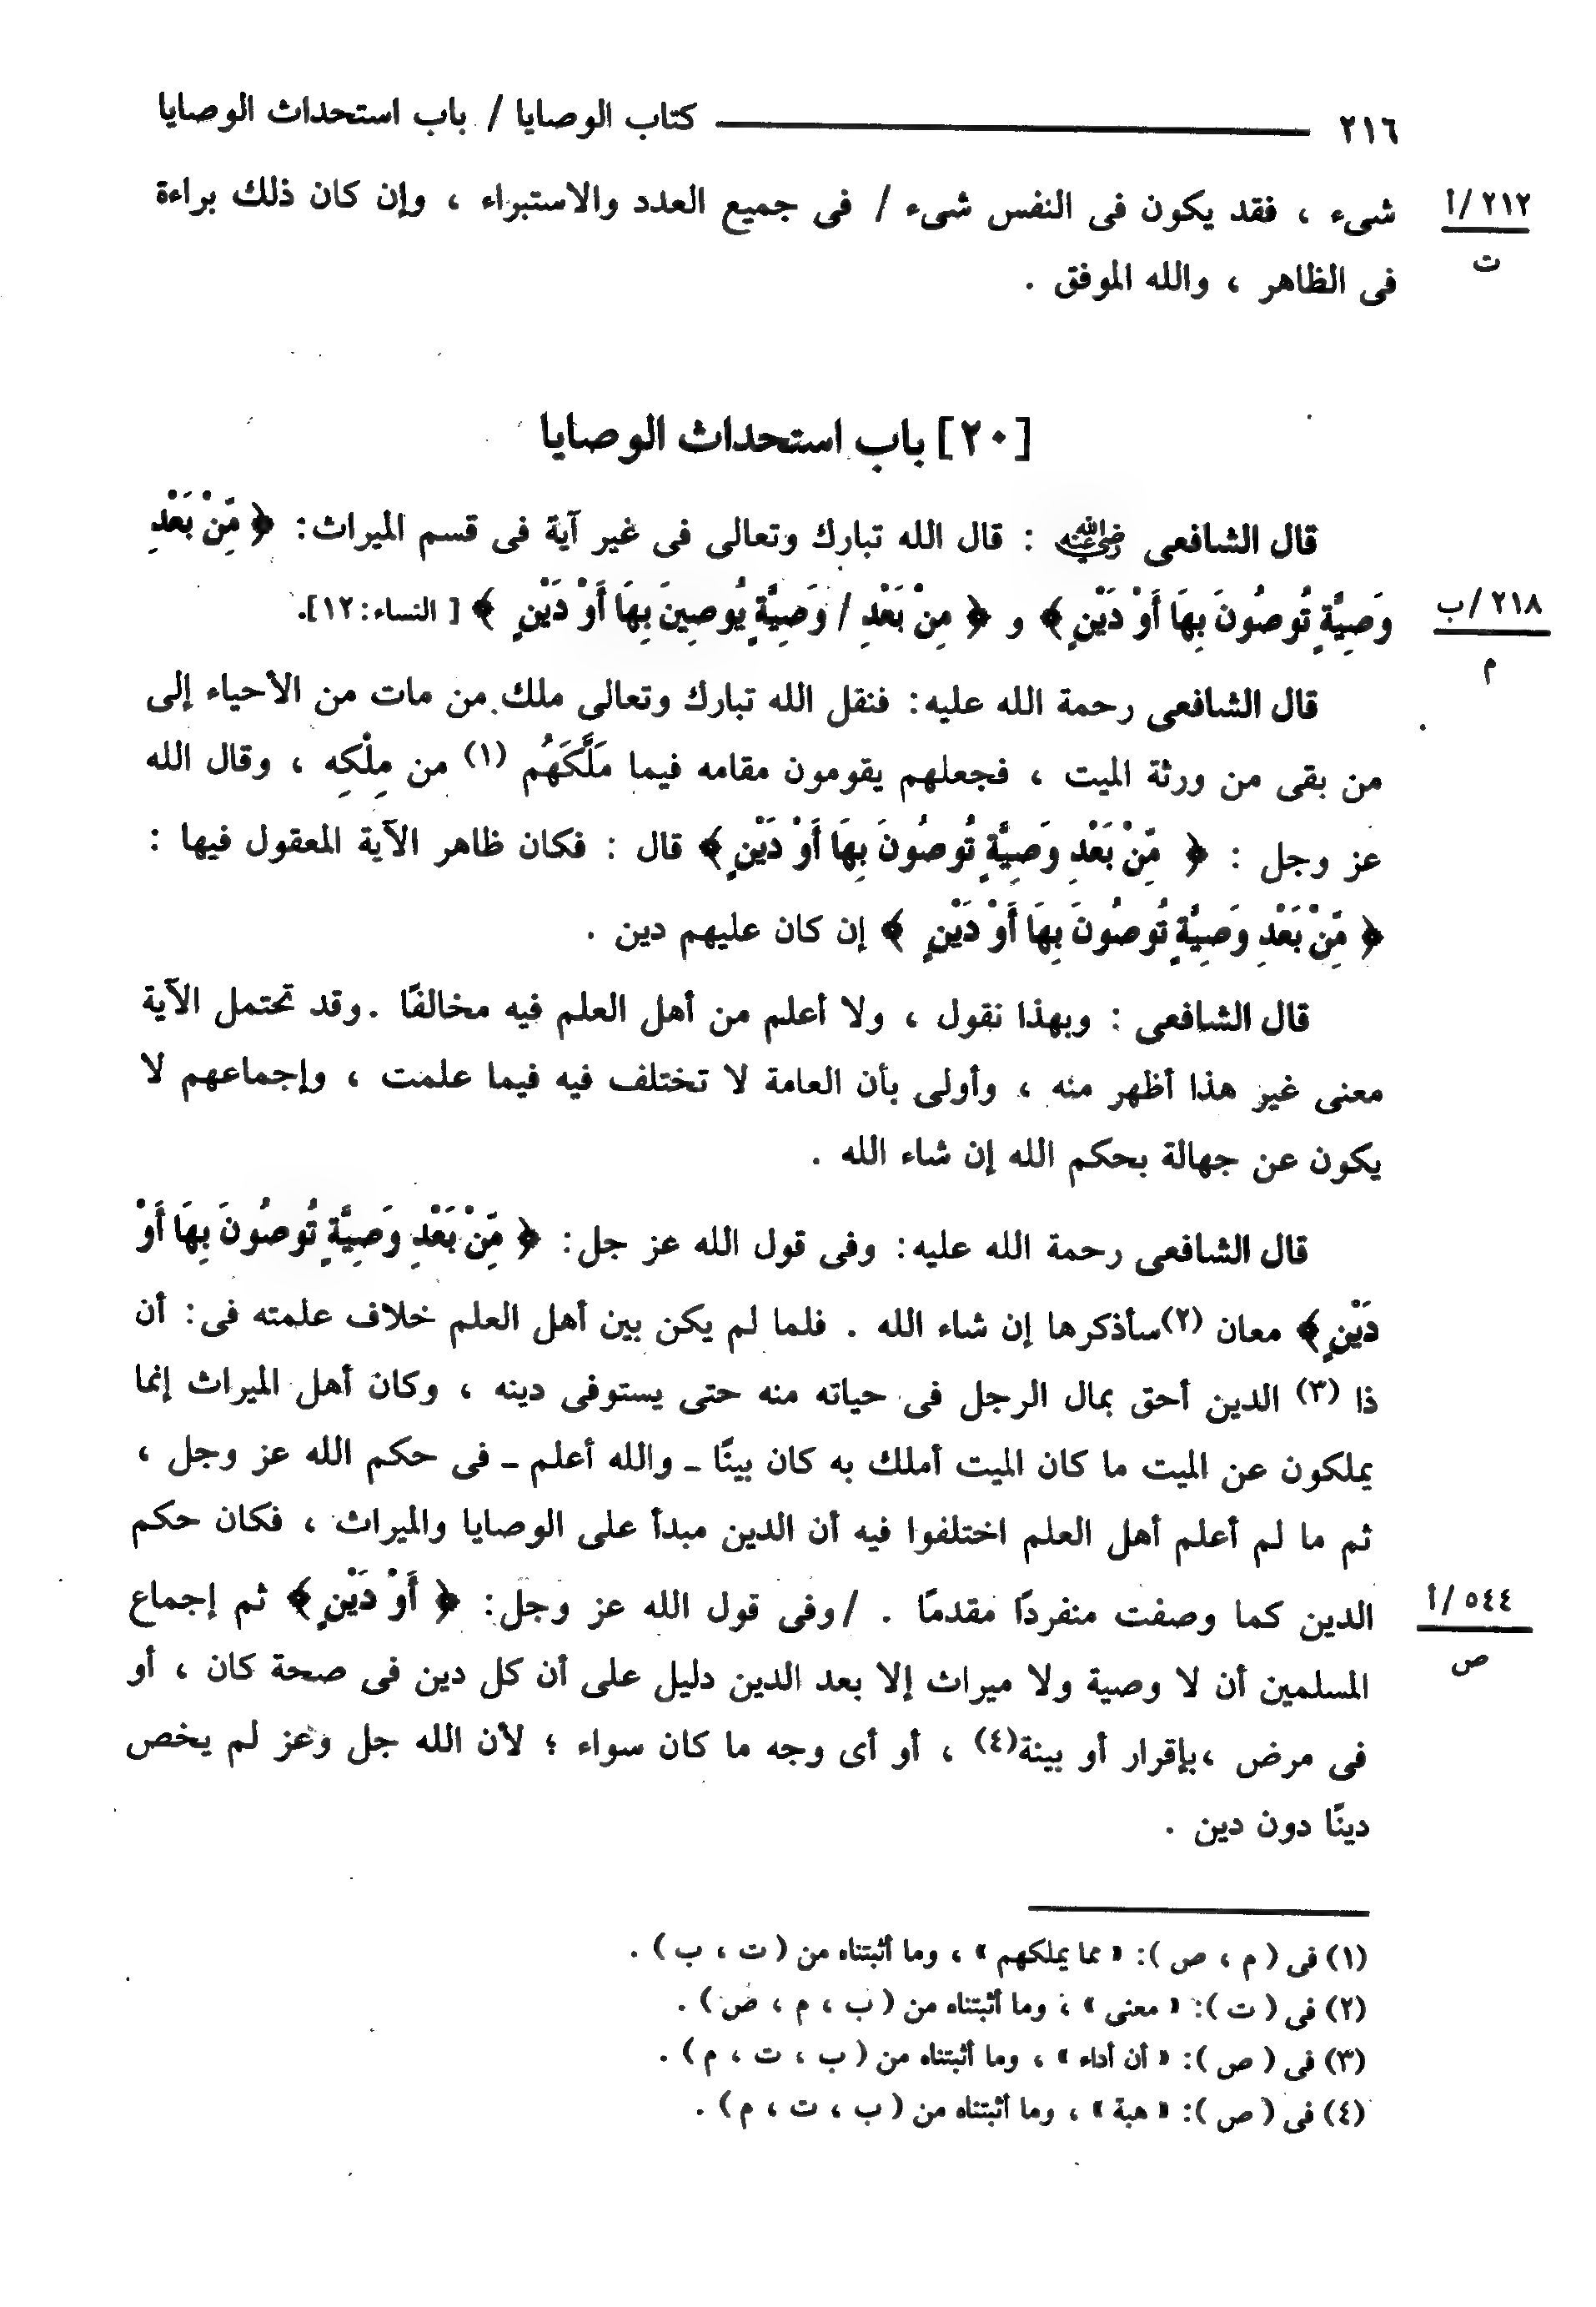 ٢١٦ كتاب الوصايا / باب استحداث الوصايا
٢١٢ /أ
ت
شىء ، فقد يكون فى النفس شىء / فى جميع العدد والاستبراء ، وإن كان ذلك براءة
فى الظاهر ، والله الموفق .
[٢٠] باب استحداث الوصايا
قال الشافعى رضي الله عنه : قال الله تبارك وتعالى فى غير آية فى قسم الميراث: ﴿ مِّنْ بَعْدِ
٢١٨ /ب
م
وَصِيَّةٍ تُوصُونَ بِهَا أَوْ دَيْنٍ ﴾ و ﴿ مِنْ بَعْدِ / وَصِيَّةٍ يُوصِينَ بِهَا أَوْ دَيْنٍ ﴾ [ النساء: ١٢].
قال الشافعى رحمة الله عليه: فنقل الله تبارك وتعالى ملك من مات من الأحياء إلى
من بقى من ورثة الميت ، فجعلهم يقومون مقامه فيما مَلَّكَهُم (١) من مِلْكِه ، وقال الله
عز وجل : ﴿ مِّنْ بَعْدِ وَصِيَّةٍ تُوصُونَ بِهَا أَوْ دَيْنٍ ﴾ قال : فكان ظاهر الآية المعقول فيها :
﴿ مِّنْ بَعْدِ وَصِيَّةٍ تُوصُونَ بِهَا أَوْ دَيْنٍ ﴾ إن كان عليهم دين .
قال الشافعى : وبهذا نقول ، ولا أعلم من أهل العلم فيه مخالفًا . وقد تحتمل الآية
معنى غير هذا أظهر منه ، وأولى بأن العامة لا تختلف فيه فيما علمت ، وإجماعهم لا
يكون عن جهالة بحكم الله إن شاء الله .
قال الشافعى رحمة الله عليه: وفى قول الله عز جل: ﴿ مِّنْ بَعْدِ وَصِيَّةٍ تُوصُونَ بِهَا أَوْ
دَيْنٍ ﴾ معان (٢)سأذكرها إن شاء الله . فلما لم يكن بين أهل العلم خلاف علمته فى: أن
ذا (٣) الدين أحق بمال الرجل فى حياته منه حتى يستوفى دينه ، وكان أهل الميراث إنما
يملكون عن الميت ما كان الميت أملك به كان بينًا ـ والله أعلم ـ فى حكم الله عز وجل ،
ثم ما لم أعلم أهل العلم اختلفوا فيه أن الدين مبدأ على الوصايا والميراث ، فكان حكم
٥٤٤ /أ
ص
الدين كما وصفت منفردًا مقدمًا . /وفى قول الله عز وجل: ﴿ أَوْ دَيْنٍ ﴾ ثم إجماع
المسلمين أن لا وصية ولا ميراث إلا بعد الدين دليل على أن كل دين فى صحة كان ، أو
فى مرض ،بإقرار أو بينة(٤) ، أو أى وجه ما كان سواء ؛ لأن الله جل وعز لم يخص
دينًا دون دين .
(١) فى ( م ، ص ): « مما يملكهم » ، وما أثبتناه من ( ت ، ب ) .
(٢) فى ( ت ): « معنى » ، وما أثبتناه من ( ب ، م ، ص ) .
(٣) فى ( ص ): « أن أداء » ، وما أثبتناه من ( ب ، ت ، م ) .
(٤) فى ( ص ): « هبة » ، وما أثبتناه من ( ب ، ت ، م ) .